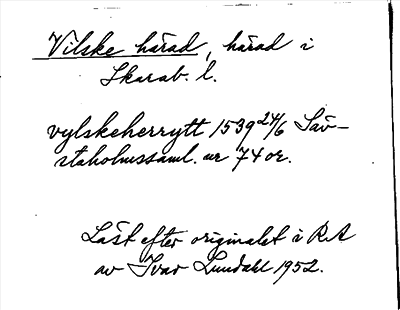 Vilske härad, härad i
Skarab. l.
vylskeherrytt 1539 24/6 Säv-
staholmssaml. nr 74 or.
Läst efter originalet i RA
av Ivar Lundahl 1952.